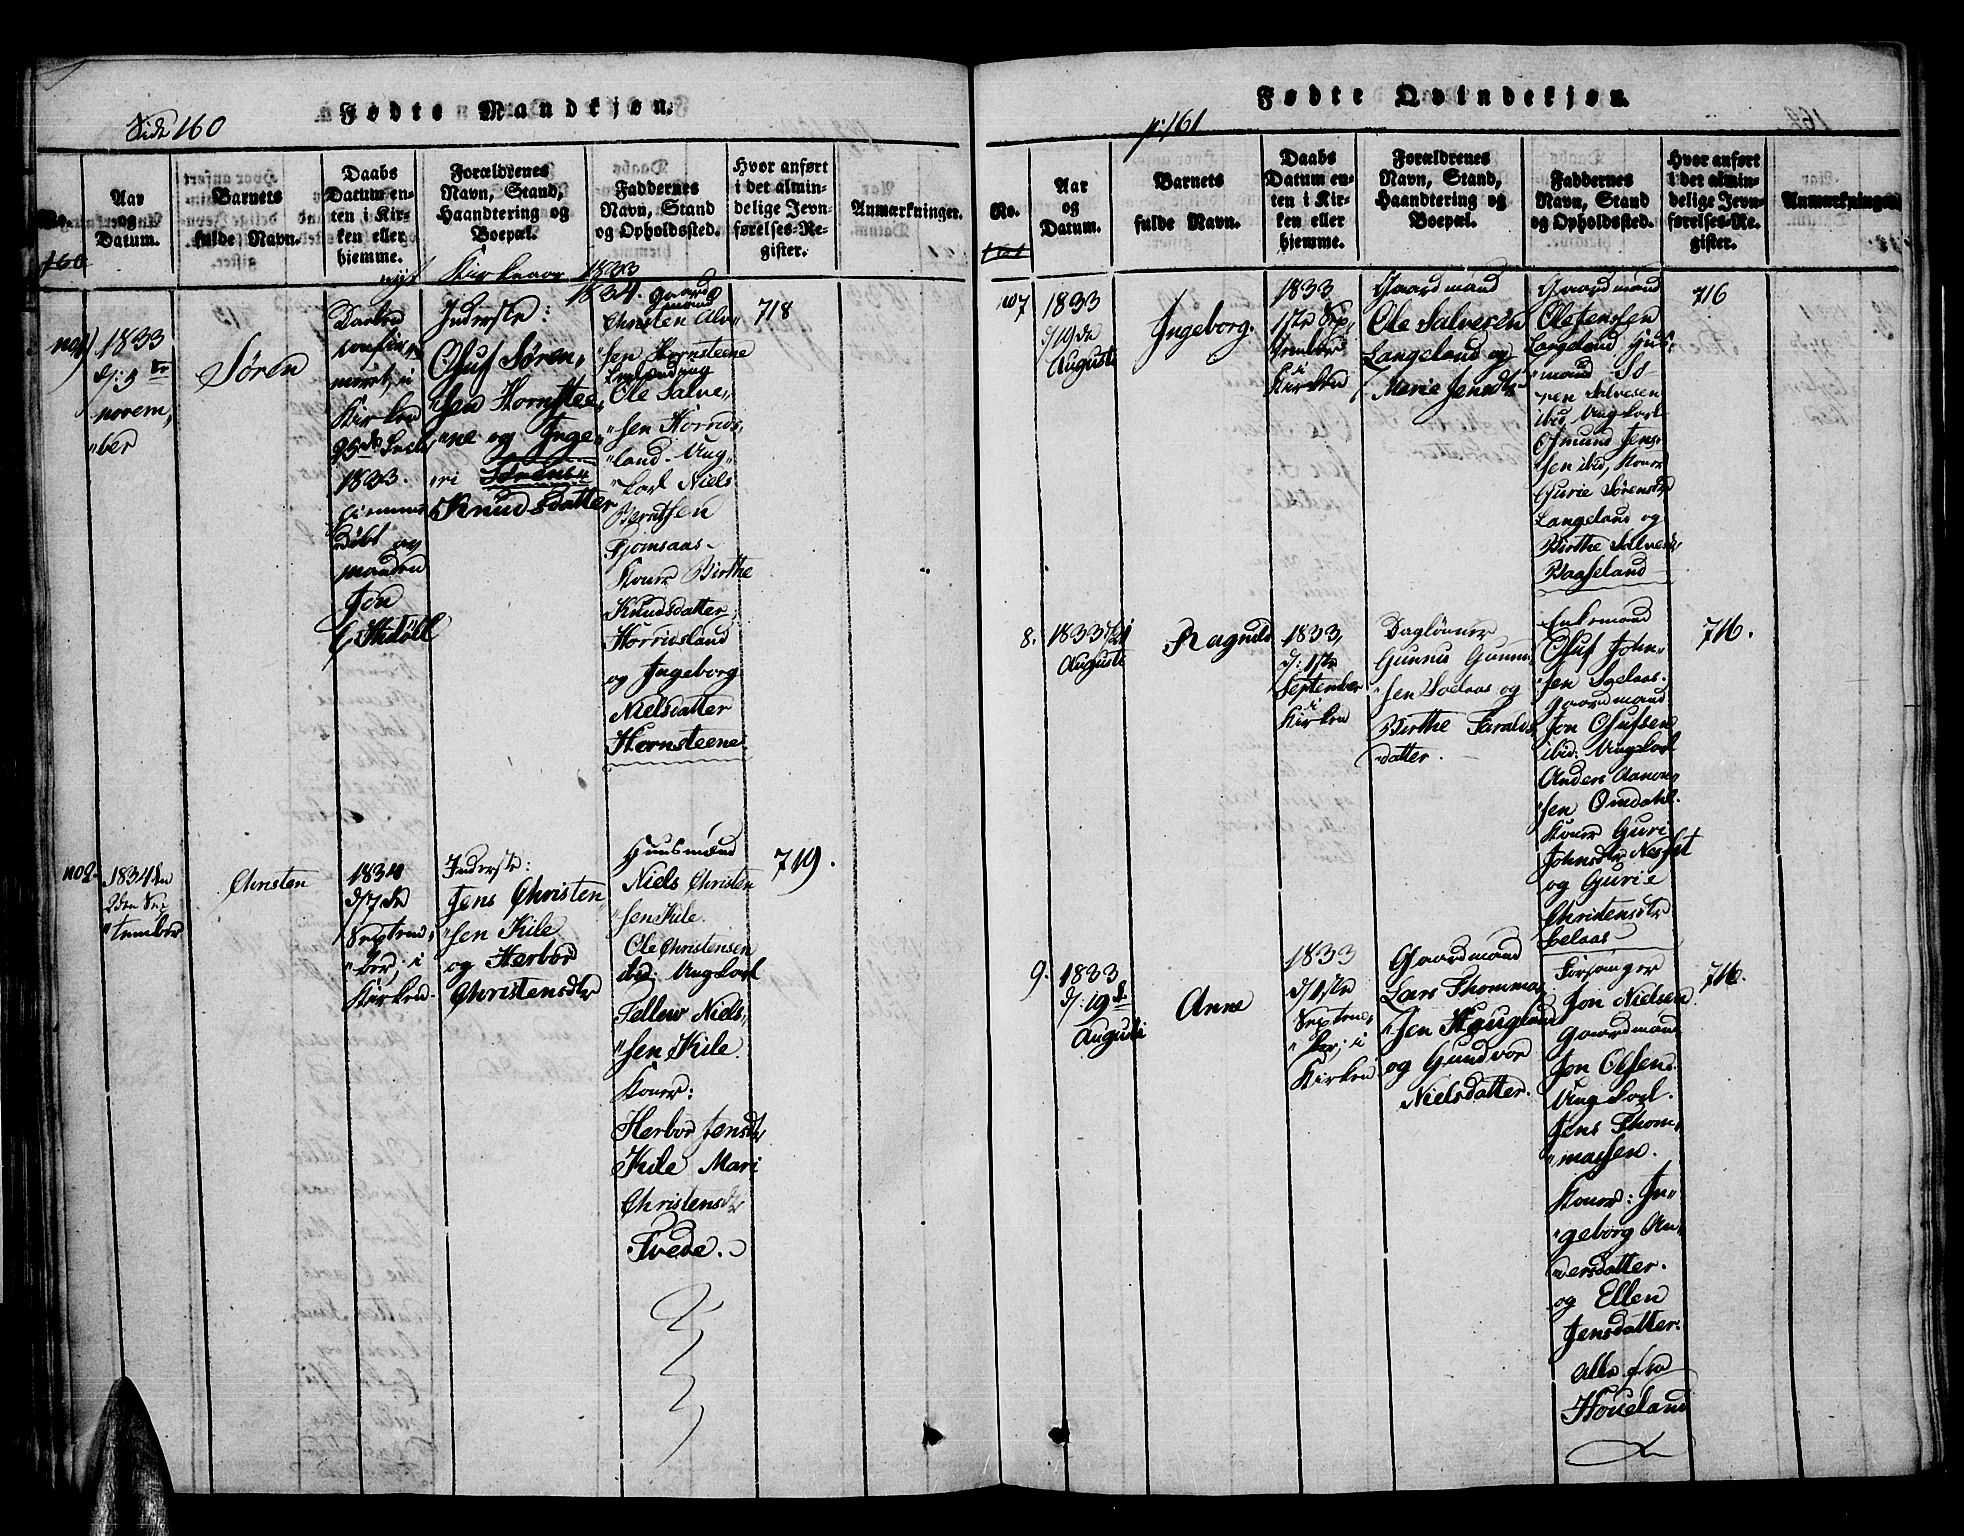 Side 160
Fødte Mandkjøn.
No.
160
Aar
og
Datum.
Barnets
fulde Navn.
Daabs
Datum en-
ten i Kir-
ken eller
hjemme.
Forældrenes
Navn, Stand,
Haandtering og
Boepæl.
Faddernes
Navn, Stand
og Opholdssted.
Hvor anført
i det almin-
delige Jevn-
førelses-Re-
gister.
Anmærkninger.
nyt Kirkeaar 1833
1834.
no 1)
1833
d: 5
novem„
„ber
Søren
Daaben
confir„
meret, i
Kirken
25de
1833.
hjemme
døbt av
manden
Jon
Inderste:
Oluf Søren„
„sen Hornstee„
„ne og Inge„
„ri Sørens„
Knudsdatter
Gaard
mand
Christen Alv„
„sen Hornsteene
Ole Salve„
„sen Horrids„
„land. Ung„
„karl Niels
Berntsen
Fjomsaas.
Koner Birthe
Knudsdatter,
Horridsland
og Ingeborg
Nielsdatter
Hornsteene
718
no 2.
1834 den
2den Sep
„tember
Christen
1834
d/7de
Septem„
„ber, i
Kirken
Inderste:
Jens Christen„
„sen Kile
og Herbor
Christensdtr
Huusmænd
Niels Christen
„sen Kile.
Ole Christensen
ibid: Ungkarl
Tellew Niels„
„sen Kile.
Koner:
Herbor Jensdtr
Kile Mari
Christensdtr
Tvede.
719.
p: 161
Fødte Qvindekjøn.
No.
161
Aar
og
Datum.
Barnets
fulde Navn.
Daabs
Datum en-
ten i Kir-
ken eller
hjemme.
Forældrenes
Navn, Stand,
Haandtering og
Boepæl.
Faddernes
Navn, Stand
og Opholdssted.
Hvor anført
i det almin-
delige Jevn-
førelses-Re-
gister.
Anmærkninger.
no 7
1833
d/19de
Augusti
Ingeborg.
1833
1ste Sep„
tember
i
Kirken
Gaardmand
Ole Salvesen
Langeland og
Marie Jensdtr
Gaardmand
Ole Jensen
Langeland Huus„
„mand Sø„
ren Salvesen
ibid, Ungkarl
Osmund Jens„
sen ibid, Koner
Gurie Sørensdtr
Langeland og
Birthe Salvesdtr
Baaseland
716
8.
1833 d/21
Augusti
Ragnild
1833
d: 1ste
September
i
Kirken
Dagløner
Gunnus Gunnu„
„sen Soelaas og
Birthe Taralds
„datter.
Enkemand
Oluf John„
„sen Soelaas.
Gaardmand
Jon Olufsen
ibid. Ungkarl
Anders Aanon„
„sen Omdahl.
Koner Guri
Johnsdtr Neset
og Gurie
Christensdtr
Soelaas
716.
9.
1833
d/: 19d
Augusti
Anne
1833
d/1ste
Septem„
„ber, i
Kirken
Gaardmand
Lars Thommas
„sen Haugland
og Gundvor
Nielsdatter.
Forsanger
Jon Nielsen
Gaardmand
Jon Olsen.
Ungkarl.
Jens Thom„
„massen.
Koner: In„
„geborg An„
„dersdatter.
og Ellen
Jensdatter.
Alle fra
Houeland
716.